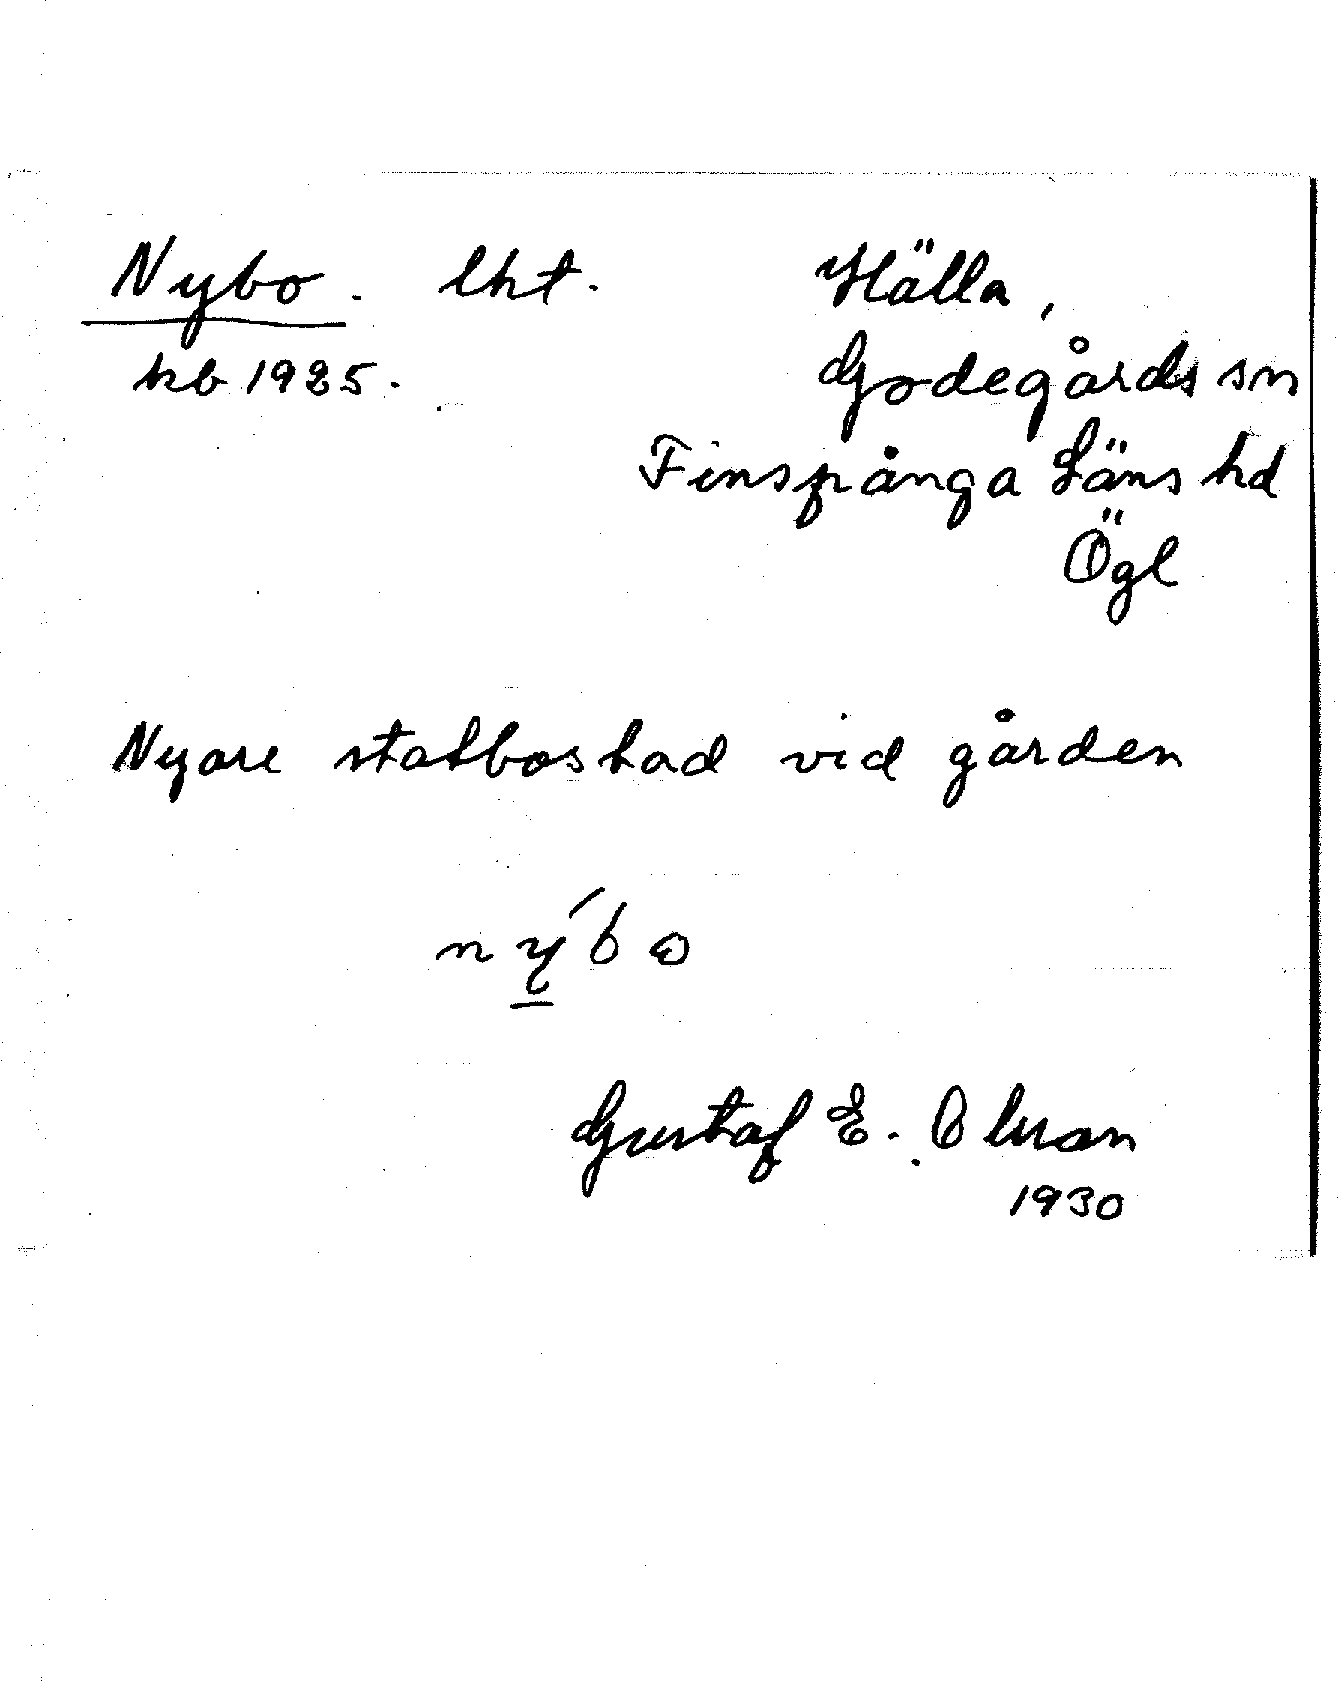 Nybo. lht. Hälla,
kb 1925. Godegårds sn
Finspånga Läns hd
Ögl
Nyare statbostad vid gården
nýbo
Gustaf E. Olsson
1930